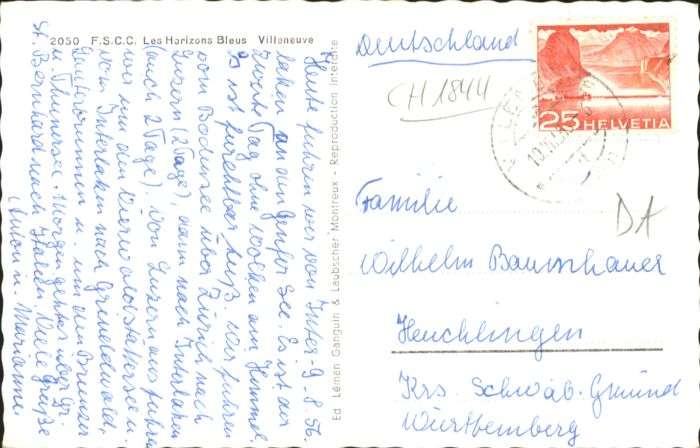 2050 F.S.C.C. Les Horizons Bleus Villeneuve
9. 8. 56
Heute fuhren wir von Inter-
laken an den Genfer See. Es ist der
zweite Tag ohne Wolken am Himmel
Es ist furchtbar heiß. Wir fuhren
vom Bodensee über Zürich nach
Luzern (2 Tage), dann nach Interlaken
(auch 2 Tage). Von Luzern aus fuhren
wir um den Vierwaldstättersee u.
von Interlaken nach Grindelwald,
Lauterbrunnen u. um den Brienzer
u. Thunersee. Morgen geht es über Gr.
St. Bernhard nach Italien. Viele Grüße
Anton u. Marianne.
Ed. Léman Ganguin & Laubscher Montreux - Reproduction interdite
Deutschland
CH 1844
25 HELVETIA
Familie
DA
Wilhelm Baumhauer
Heuchlingen
Krs. Schwäb. Gmünd
Württemberg